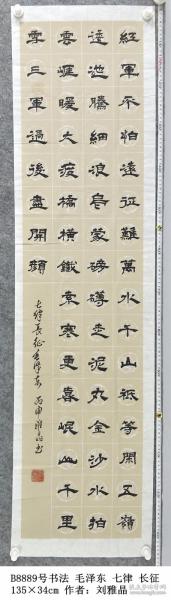 紅軍不怕遠征難萬水千山祇等閒五嶺
逶迤騰細浪烏蒙磅礴走泥丸金沙水拍
雲崕暖大渡橋橫鐵索寒更喜岷山千里
雪三軍過後盡開顏
七律長征毛澤東 丙申雅晶書
B8889号书法 毛泽东 七律 长征
135×34cm 作者：刘雅晶